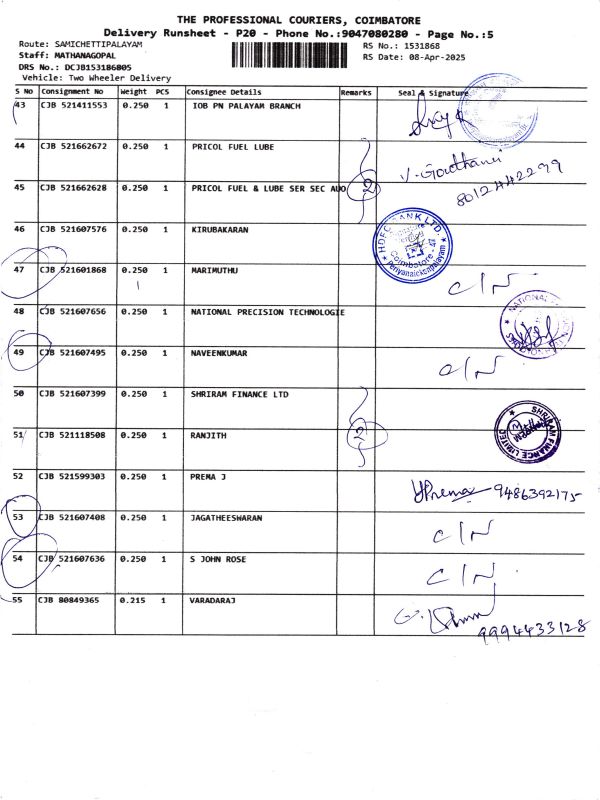 THE PROFESSIONAL COURIERS, COIMBATORE
Delivery Runsheet - P20 - Phone No.:9047080280 - Page No.:5
Route: SAMICHETTIPALAYAM RS No.: 1531868
Staff: MATHANAGOPAL RS Date: 08-Apr-2025
DRS No.: DCJB153186805
Vehicle: Two Wheeler Delivery
S No Consignment No Weight PCS Consignee Details Remarks Seal & Signature
43 CJB 521411553 0.250 1 IOB PN PALAYAM BRANCH
44 CJB 521662672 0.250 1 PRICOL FUEL LUBE V. Gouthami
45 CJB 521662628 0.250 1 PRICOL FUEL & LUBE SER SEC AUO 2 8012442299
46 CJB 521607576 0.250 1 KIRUBAKARAN HDFC BANK LTD. Coimbatore - 47 Periyanaickenpalayam
47 CJB 521601868 0.250 1 MARIMUTHU C/N
48 CJB 521607656 0.250 1 NATIONAL PRECISION TECHNOLOGIE NATIONAL
49 CJB 521607495 0.250 1 NAVEENKUMAR C/N
50 CJB 521607399 0.250 1 SHRIRAM FINANCE LTD
51 CJB 521118508 0.250 1 RANJITH 2 SHRIRAM FINANCE LIMITED
52 CJB 521599303 0.250 1 PREMA J Prema 9486392175
53 CJB 521607408 0.250 1 JAGATHEESHARAN C/N
54 CJB 521607636 0.250 1 S JOHN ROSE C/N
55 CJB 80849365 0.215 1 VARADARAJ
9994433128